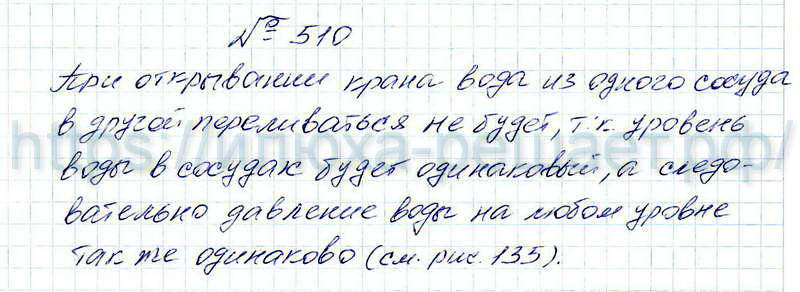 № 510
При открывании крана вода из одного сосуда
в другой переливаться не будет, т.к. уровень
воды в сосудах будет одинаковый, а следо-
вательно давление воды на любом уровне
так же одинаково (см. рис. 135).
https://илюха-решает.рф/